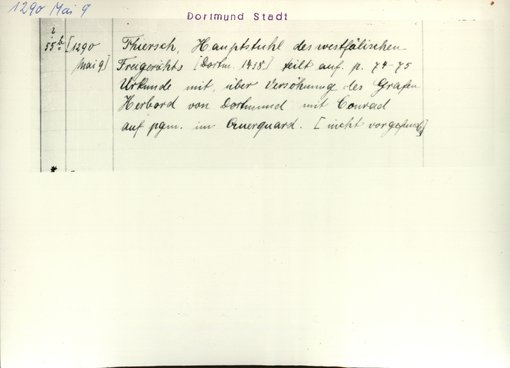 1290 Mai 9
Dortmund Stadt
?
55b [1290
Mai 9]
Thiersch, Hauptstuhl des westfälischen
Freigerichts [Dortm. 1838] teilt auf. p. 74-75
Urkunde mit, über Versöhnung des Grafen
Herbord von Dortmund mit Conrad
auf pgm. im Querquard. [nicht vorgefunden]